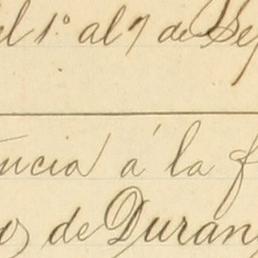 el 1º al 7 de Sep
ncia á la f
os de Duran